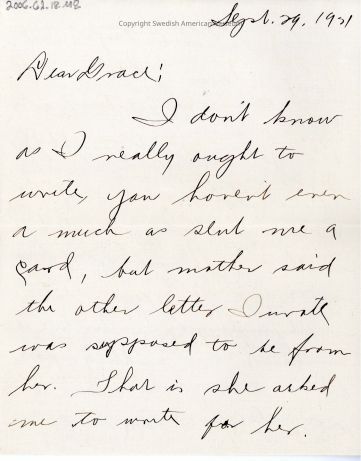 2006.62.18
Copyright Swedish American
Sept. 29, 1921
Dear Grace:
I don't know
as I really ought to
write, you haven't even
a much as sent me a
card, but mother said
the other letter I wrote
was supposed to be from
her. That is she asked
me to write for her.